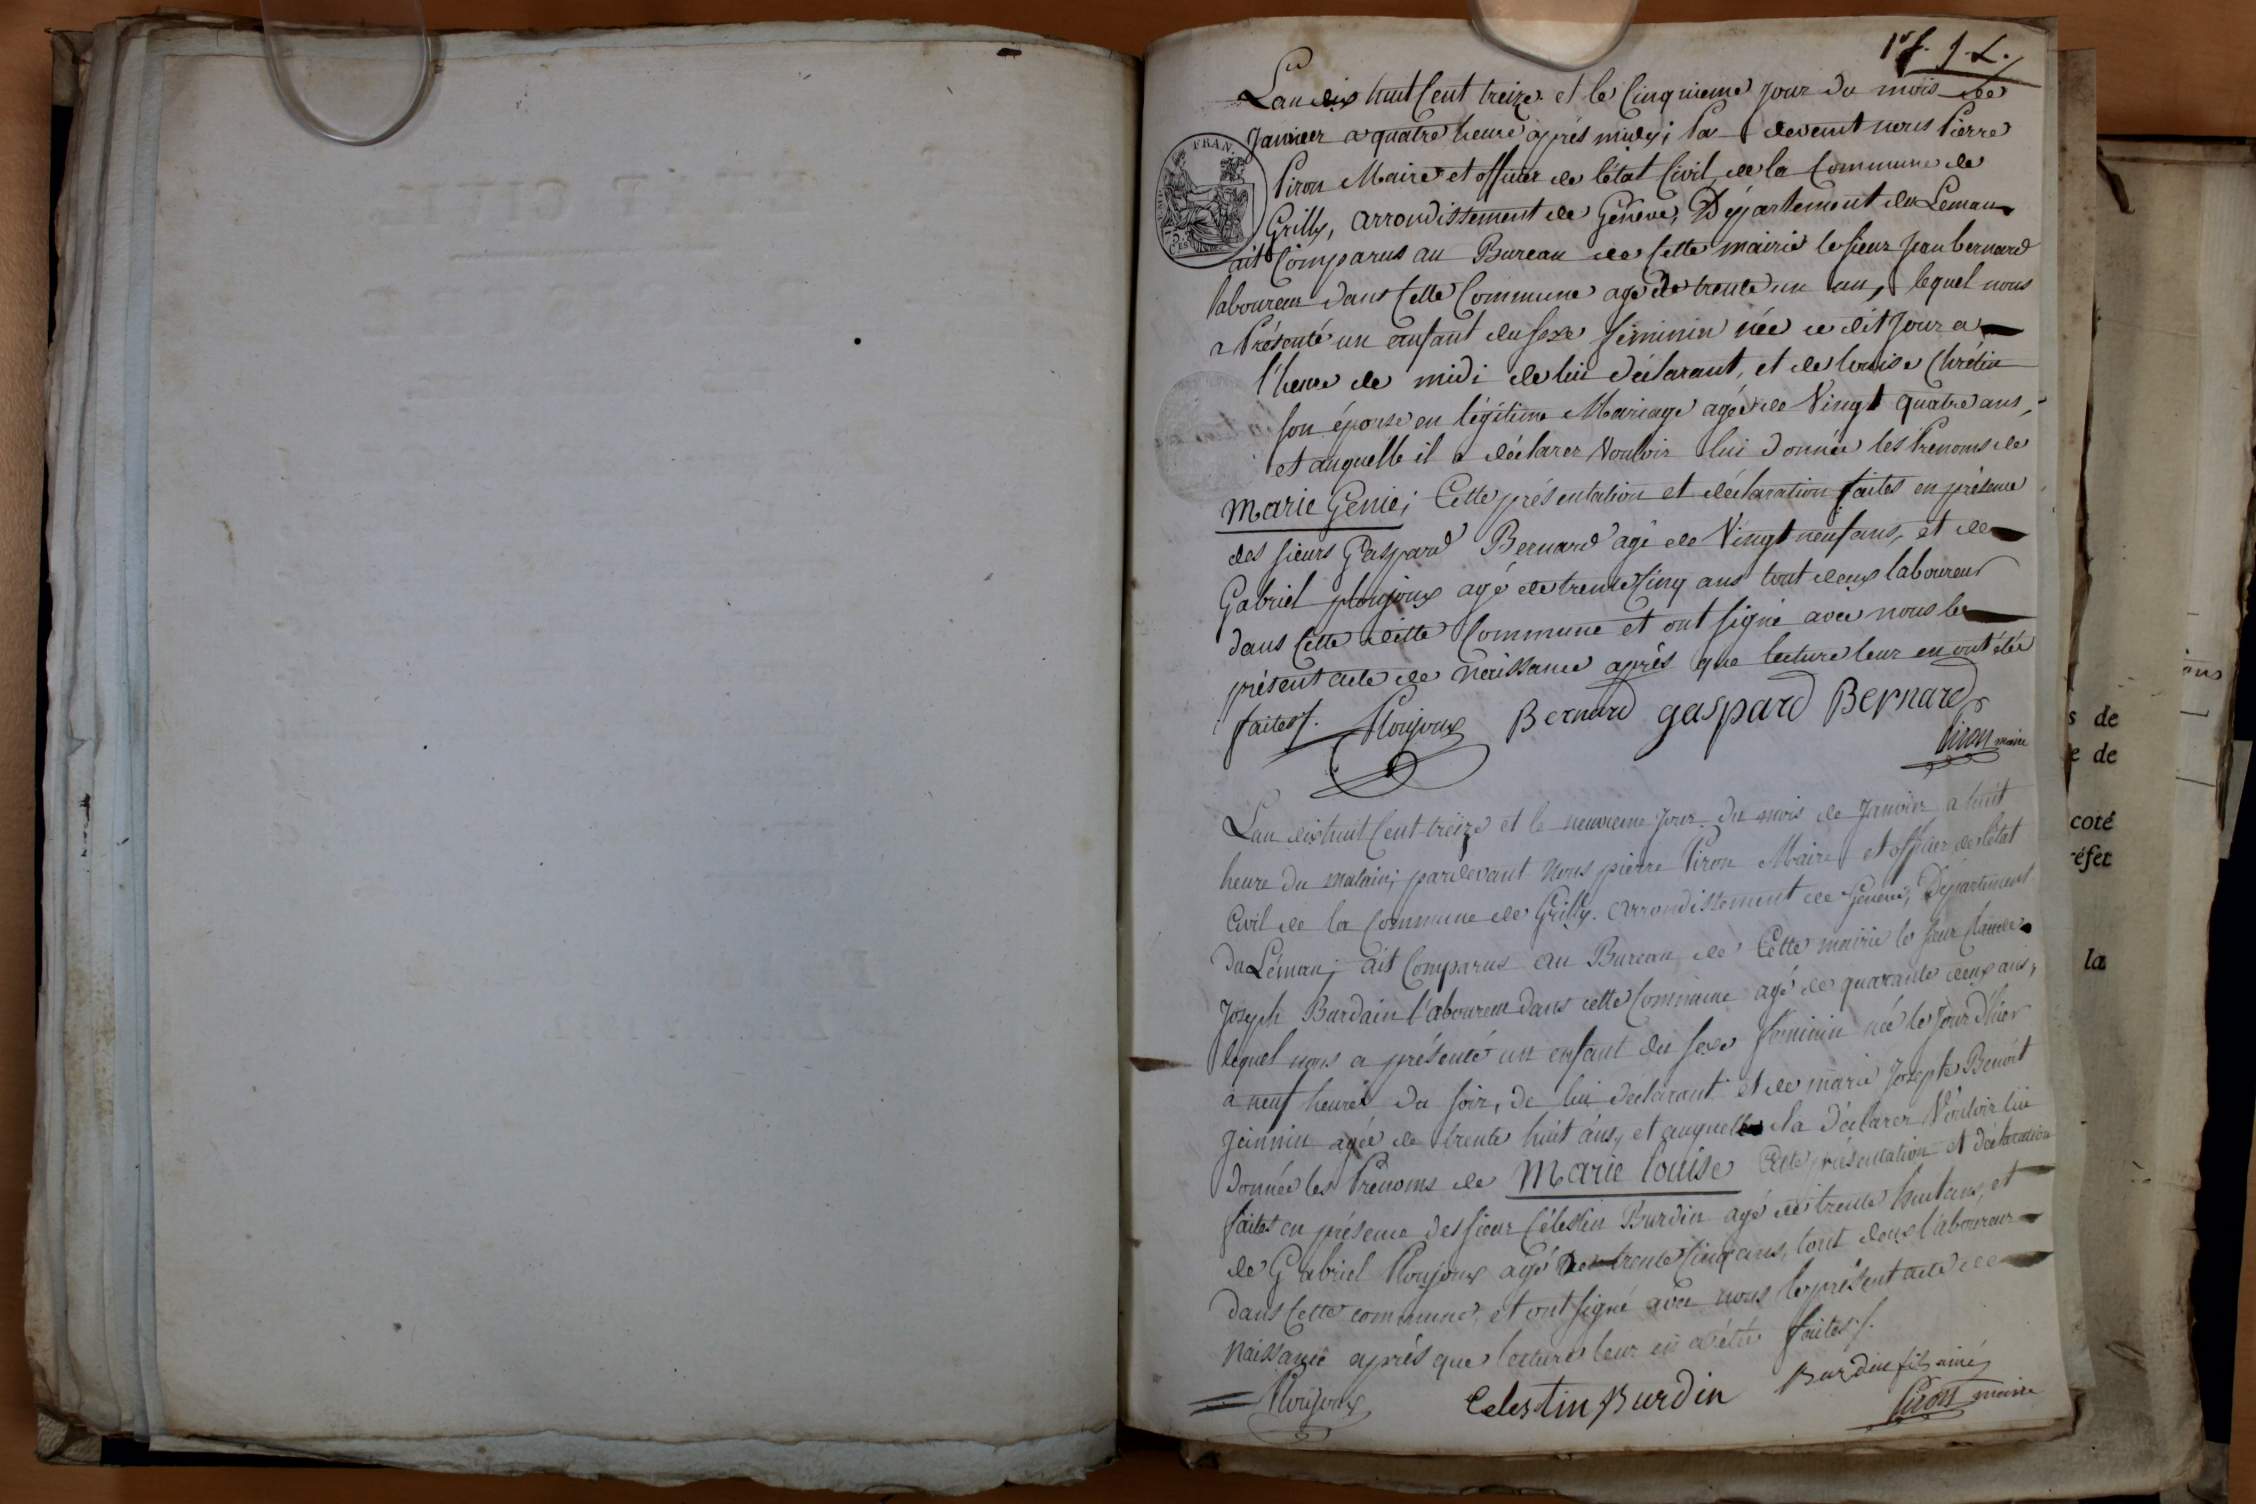 1er f. J. L.
L'an dix huit Cent treize et le Cinquieme jour du mois de
Janvier a quatre heure après midy; Par devant nous Pierre
FRAN.
Piron Maire et officier de l'état Civil de la Commune de
Grilly, arrondissement de Genève, Département du Leman
ait Comparus au Bureau de Cette mairie le sieur Jean bernard
laboureur dans Cette Commune agé de trente un an, lequel nous
a Présenté un enfant du sexe féminin née ce dit jour a
l'heure de midi de lui déclarant, et de louise Chrétin
son épouse en légitime Mariage agée de Vingt quatre ans,
et auquelle il a déclarer Vouloir lui donnée les Prenoms de
Marie Genie; Cette présentation et déclaration faites en présence
des sieurs Gaspard Bernard agé de Vingt neuf ans, et de
Gabriel ploujoux agé de trente Cinq ans tout deux laboureur
dans Cette ditte Commune et ont signé avec nous le
présent acte de Naissance après que lecture leur en ont étée
faites/.
Ploujoux Bernard gaspard Bernard
Piron maire
L'an dix huit Cent treize et le neuvieme jour du mois de Janvier a huit
heure du matain; par devant Nous pierre Piron Maire et officier de l'état
Civil de la Commune de Grilly. arrondissement de Genève, Département
du Léman; ait Comparus au Bureau de Cette mairie le sieur Claude
Joseph Burdain l'aboureur dans cette Commune agé de quarante deux ans,
lequel nous a présenté un enfant du sexe féminin née le jour d'hier
a neuf heures du soir, de lui déclarant et de marie Josephte Benoit
Jeannin agée de trente huit ans, et auquelle il a Déclarer Vouloir lui
donnée les Prénoms de Marie louise Cette présentation et déclaration
faites en présence des sieur Célestin Burdin agé de trente huit ans, et
de Gabriel Ploujoux agé de trente Cinq ans, tout deux l'aboureur
dans Cette commune, et ont signé avec nous le présent acte de
Naissance après que lecture leur en a étée faites/.
Ploujoux Celestin Burdin Burdin fils ainé
Piron maire
s de
e de
coté
éfet
la